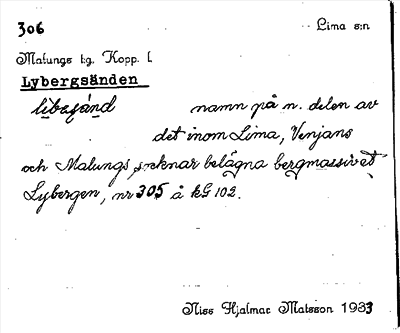 306 Lima s:n
Malungs t:g. Kopp. l.
Lybergsänden
namn på n. delen av
det inom Lima, Venjans
och Malungs socknar belägna bergmassivet
Lybergen, nr 305 å kG 102.
Niss Hjalmar Matsson 1933